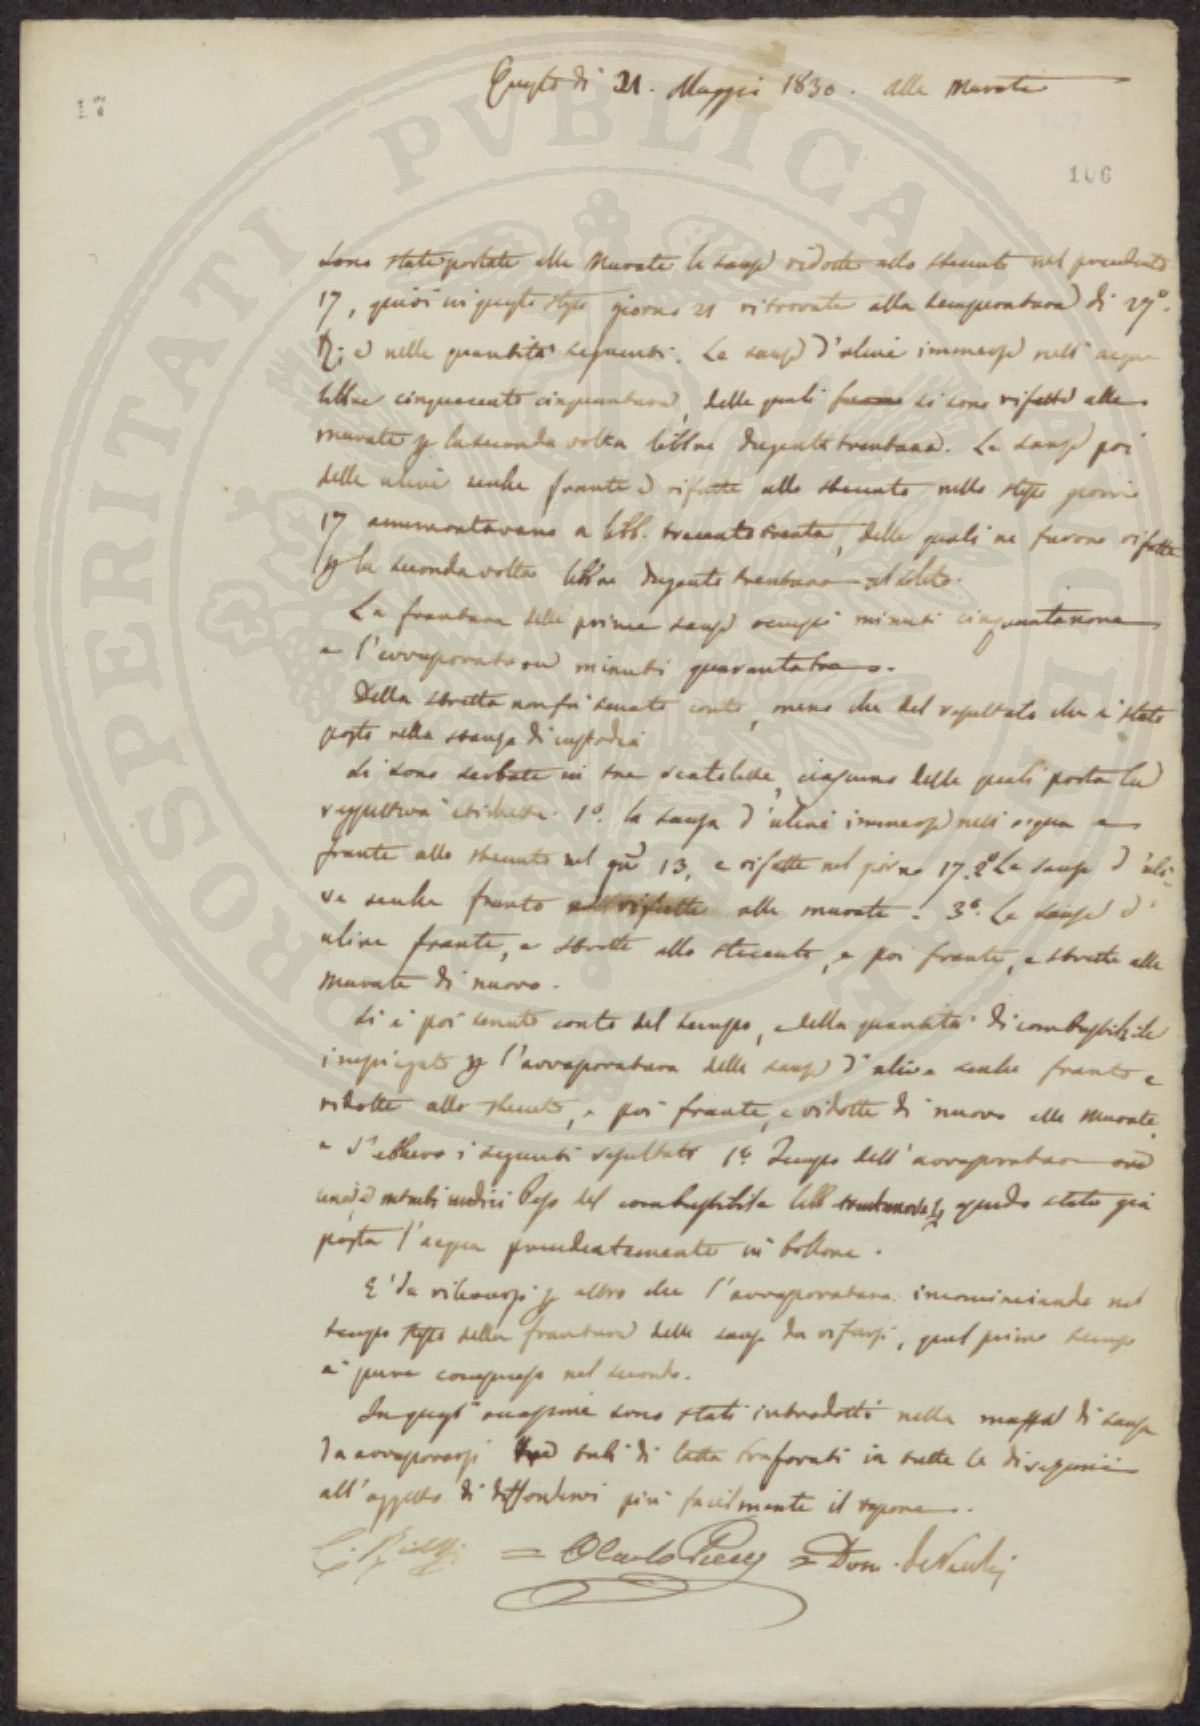 Questo dì 21. Maggio 1830. alle Murate
17
106
Sono state portate alle Murate le sanse ridotte allo stecuto nel precedente
17, quivi in questo stesso giorno 21 ritrovate alla temperatura di 27°.
R; e nelle quantità seguenti. Le sanse d'ulive immerse nell'acqua
libbre cinquecento cinquantuna, delle quali si sono rifatte alle
murate p la seconda volta libbre dugento trentuna. Le sanse poi
delle ulive secche frante e rifatte allo steccuto nello stesso giorno
17 ammontavano a libb. trecento trenta, delle quali ne furono rifatte
p la seconda volta libbre dugento trentuna al solito.
La frantura delle prime sanse occupò minuti cinquantanove
e l'avvaporatura minuti quarantatre.
Della stretta non fù tenuto conto, meno che del resultato che è stato
posto nella stanza di custodia
Si sono serbate in tre scatolette, ciascuna delle quali porta la
respettiva etichetta. 1°. la sansa d'ulive immerse nell'acqua e
frante allo steccuto nel gno 13, e rifatte nel giorno 17. 2° Le sanse d'uli-
ve secche frante rifatte alle murate. 3°. Le sanse d'
ulive frante, e strette allo steccuto, e poi frante, e strette alle
Murate di nuovo.
Si è poi tenuto conto del tempo, e della quantità di combustibile
impiegato p l'avvaporatura delle sanse d'ulive secche frante e
ridotte allo steccuto, e poi frante, e ridotte di nuovo alle Murate,
e s'ebbero i seguenti resultati 1°. Tempo dell'avvaporatura ore
una, e minuti undici Peso del combustibile libb essendo stata già
posta l'acqua precedentemente in bollore.
E' da rilevarsi p altro che l'avvaporatura incominciando nel
tempo stesso della frantura delle sanse da rifarsi, quel primo tempo
è pure compreso nel secondo.
In quest'occasione sono stati introdotti nella massa di sanse
da avvaporarsi tre tubi di latta traforati in tutte le direzioni
all'oggetto di diffondervi più facilmente il vapore.
= Carlo = Dom.